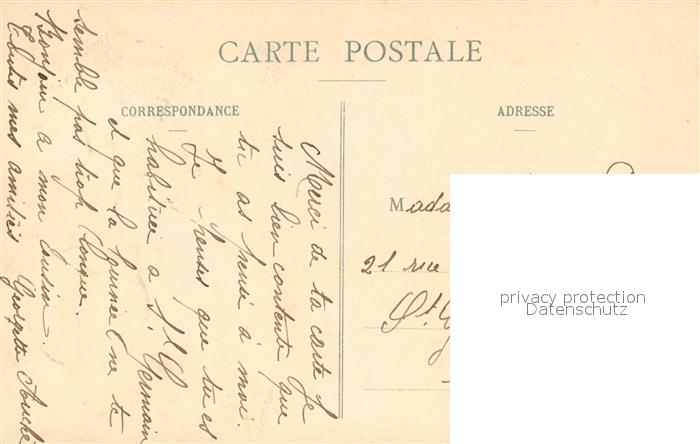 CARTE POSTALE
CORRESPONDANCE
ADRESSE
Merci de ta carte je
suis bien contente que
tu as pensé à moi.
Je penses que tu es
habituée a St Germain
et que la journée ne te
semble pas trop longue.
Bonjour a mon Cousin.
Toutes mes amitiés Georgette
Mada
21 rue
St G
privacy protection
Datenschutz